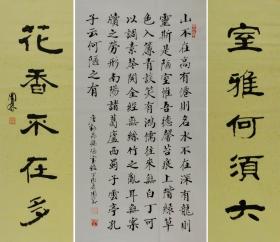 室雅何須大
山不在高有仙則名水不在深有龍則
靈斯是陋室惟吾德馨苔痕上階綠草
色入簾青談笑有鴻儒往來無白丁可
以調素琴閱金經無絲竹之亂耳無案
牘之勞形南陽諸葛廬西蜀子雲亭孔
子云何陋之有
唐劉禹錫陋室銘
花香不在多